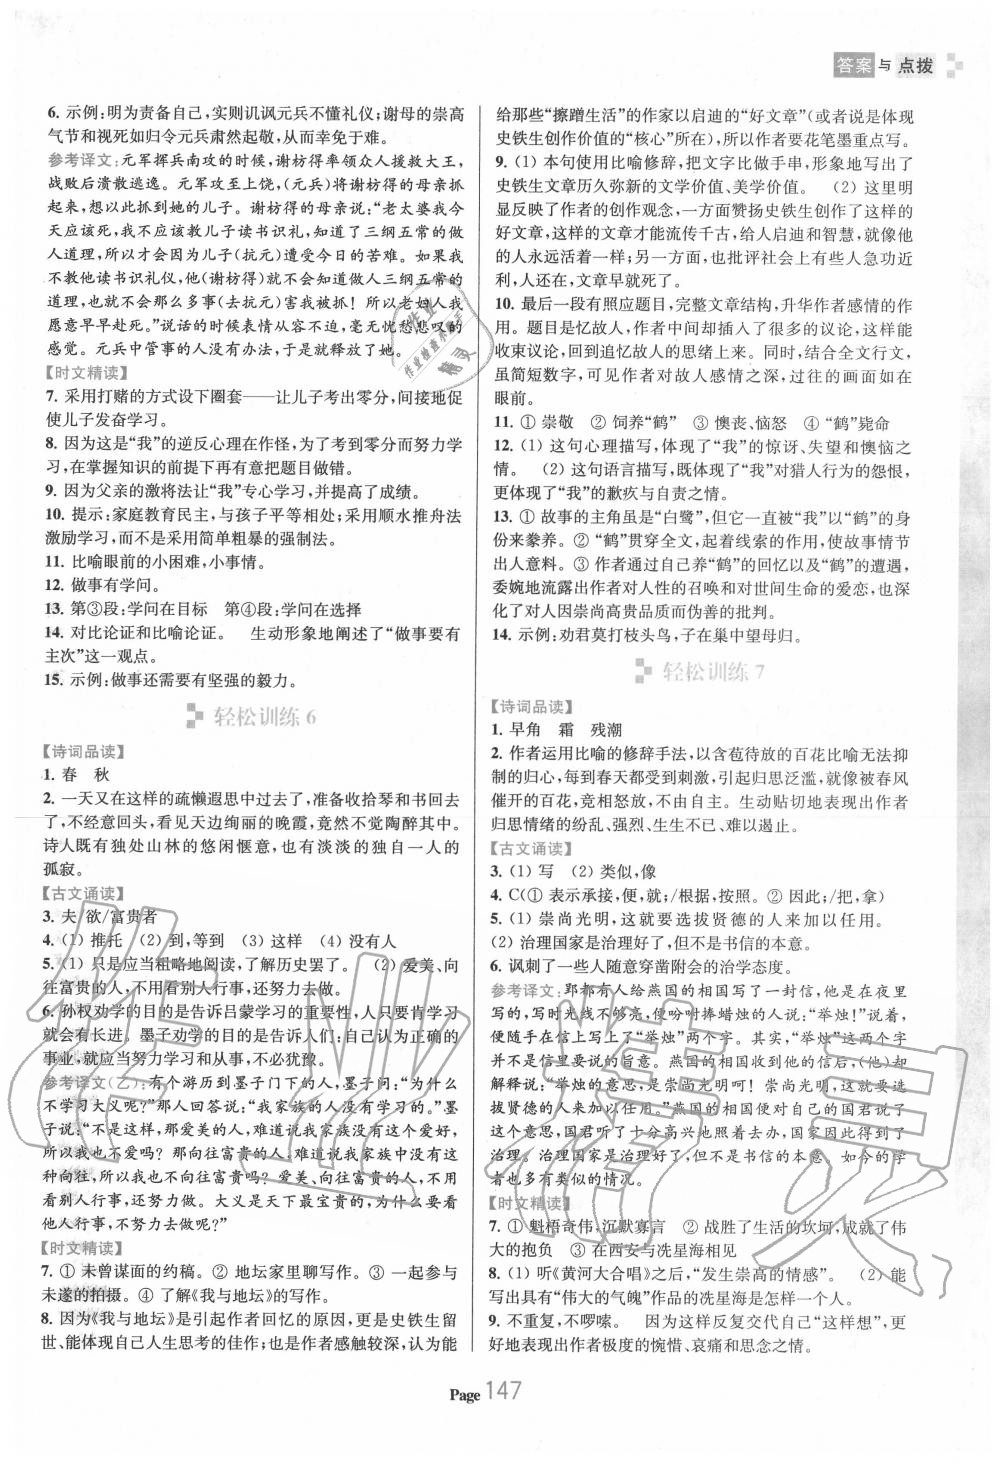 答案与点拨
6. 示例:明为责备自己,实则讥讽元兵不懂礼仪;谢母的崇高
气节和视死如归令元兵肃然起敬,从而幸免于难。
参考译文:元军挥兵南攻的时候,谢枋得率领众人援救大王,
战败后溃散逃逸。元军攻至上饶,(元兵)将谢枋得的母亲抓
起来,想以此抓到她的儿子。谢枋得的母亲说:“老太婆我今
天应该死,我不应该教儿子读书识礼,知道了三纲五常的大
义,因而才会因为儿子的关系遭受今日的苦难。如果我的儿
子不懂得读书识礼仪,他(谢枋得)就不会知道做人三纲五常的
道理,也就不会那么多事(去抗元)害我被抓! 所以老妇人我
愿意早早赴死。”说话的时候表情从容不迫,毫无忧愁悲叹的
感觉。元兵中管事的人没有办法,于是就释放了她。
【时文精读】
7. 采用打赌的方式设下圈套——让儿子考出零分,间接地促
使儿子发奋学习。
8. 因为这是“我”的逆反心理在作怪,为了考到零分而努力学
习,在掌握知识的前提下再故意把题目做错。
9. 因为父亲的激将法让“我”专心学习,并提高了成绩。
10. 提示:家庭教育民主,与孩子平等相处;采用顺水推舟法
激励学习,而不是采用简单粗暴的强制法。
11. 比喻眼前的小困难,小事情。
12. 做事有学问。
13. 第③段:学问在目标 第④段:学问在选择
14. 对比论证和比喻论证。 生动形象地阐述了“做事要有
主次”这一观点。
15. 示例:做事还需要有坚强的毅力。
轻松训练 6
【诗词品读】
1. 春 秋
2. 一天又在这样的疏懒遐思中过去,准备收拾琴和书的时
候,不经意回头,看见天边绚丽的晚霞,竟然不觉陶醉其中。
诗人既有独处山林的悠闲惬意,也有淡淡的独自一人的
孤寂。
【古文诵读】
3. 夫/欲/富贵者
4. (1) 推托 (2) 到,等到 (3) 这样 (4) 没有人
5. (1) 只是应当粗略地阅读,了解历史罢了。 (2) 爱美、向
往富贵的人,不用看别人行事,还努力做。
6. 孙权劝学的目的是告诉吕蒙学习的重要性,人只要肯学习
就会有长进。墨子劝学的目的是告诉人们:自己认为正确的
事业,就应当努力学习和从事,不必犹豫。
参考译文(乙):有个游历到墨子门下的人,墨子问:“为什么
不学习大义呢?”那人回答说:“我家族的人没有学习的。”墨
子说:“不是这样,那爱美的人,难道说我家族没有这个爱好,
所以我也不爱好吗? 那向往富贵的人,难道说我家族中没有这
种向往,所以我也不向往富贵吗? 爱美、向往富贵的人,不用
看别人行事,还努力做。大义是天下最宝贵的,为什么要看
他人行事,不努力去做呢?”
【时文精读】
7. ① 未曾谋面的约稿。② 地坛家里聊写作。③ 一起参与
未遂的拍摄。④ 了解《我与地坛》的写作。
8. 因为《我与地坛》是引起作者回忆的原因,更是史铁生留
世、能体现自己人生思考的佳作;也是作者感触较深,认为能
给那些“擦蹭生活”的作家以启迪的“好文章”(或者说是体现
史铁生创作价值的“核心”所在),所以作者要花笔墨重点写。
9. (1) 本句使用比喻修辞,把文字比做手串,形象地写出了
史铁生文章历久弥新的文学价值、美学价值。 (2) 这里明
显反映了作者的创作观念,一方面赞扬史铁生创作了这样的
好文章,这样的文章才能流传千古,给人启迪和智慧,就有人
的人永远活着;另一方面,也批评社会上有些人急功近
利,人还在,文章早就死了。
10. 最后一段有照应题目,完整文章结构,升华作者感情的作
用。题目是忆故人,作者中间却插入了很多的议论,这样能
收束议论,回到追忆故人的思绪上来。同时,结合全文行文,
虽简短数字,可见作者对故人感情之深,过往的画面如在
眼前。
11. ① 崇敬 ② 饲养“鹤” ③ 懊丧、恼怒 ④ “鹤”毙命
12. (1) 这句心理描写,体现了“我”的惊讶、失望和懊恼之
情。 (2) 这句语言描写,既体现了“我”对猎人行为的怨恨,
更体现了“我”的歉疚与自责之情。
13. ① 故事的主角虽是“白鹭”,但它一直被“我”以“鹤”的身
份来豢养。② “鹤”贯穿全文,起着线索的作用,使故事情节
出人意料。③ 作者通过自己养“鹤”的回忆以及“鹤”的遭遇,
委婉地流露出作者对人性的召唤和对世间生命的爱恋,也深
化了对人因崇尚高贵品质而伪善的批判。
14. 示例:劝君莫打枝头鸟,子在巢中望母归。
轻松训练 7
【诗词品读】
1. 早角 霜 残潮
2. 作者运用比喻的修辞手法,以含苞待放的百花比喻无法抑
制的归心,每到春天都受到刺激,引起归思泛滥,就被春风
催开的百花,竞相怒放,不由自主。生动贴切地表现出作者
归思情绪的纷乱、强烈、生生不已、难以遏止。
【古文诵读】
3. (1) 写 (2) 类似,像
4. C(① 表示承接,便,就/根据,按照。② 因此;/把,拿)
5. (1) 崇尚光明,就要选拔贤德的人来加以任用。
(2) 治理国家是治理好了,但不是书信的本意。
6. 讽刺了一些人随意穿凿附会的治学态度。
参考译文:郢都有人给燕国的相国写了一封信,他是在夜里
写的,写时光线不够亮,便吩咐捧蜡烛的人说:“举烛!”说着,
便随手在信上写上了“举烛”两个字。其实,“举烛”这两个字
并不是信里要说的旨意。燕国的相国收到他的信后,(他)却
解释说:“举烛的意思,是崇尚光明啊! 崇尚光明,这就要选
拔贤德的人来加以任用。”燕国的相国便对自己的国君说了
这个意思,国君听了十分高兴,照着去办,国家治理得到了
治理。治理国家是治理好了,但不是书信的本意。如今的学
者也多有类似的情况。
【时文精读】
7. ① 魁梧奇伟,沉默寡言 ② 战胜了生活的坎坷,成就了伟
大的抱负 ③ 在西安与冼星海相见
8. (1) 听《黄河大合唱》之后,“发生崇高的情感”。 (2) 能
写出富有“伟大的气魄”作品的冼星海是怎样一个人。
9. 不重复,不啰嗦。 因为这样反复交代自己“这样想”,更
好地表现出作者极度的惋惜、哀痛和思念之情。
Page 147
作业精灵